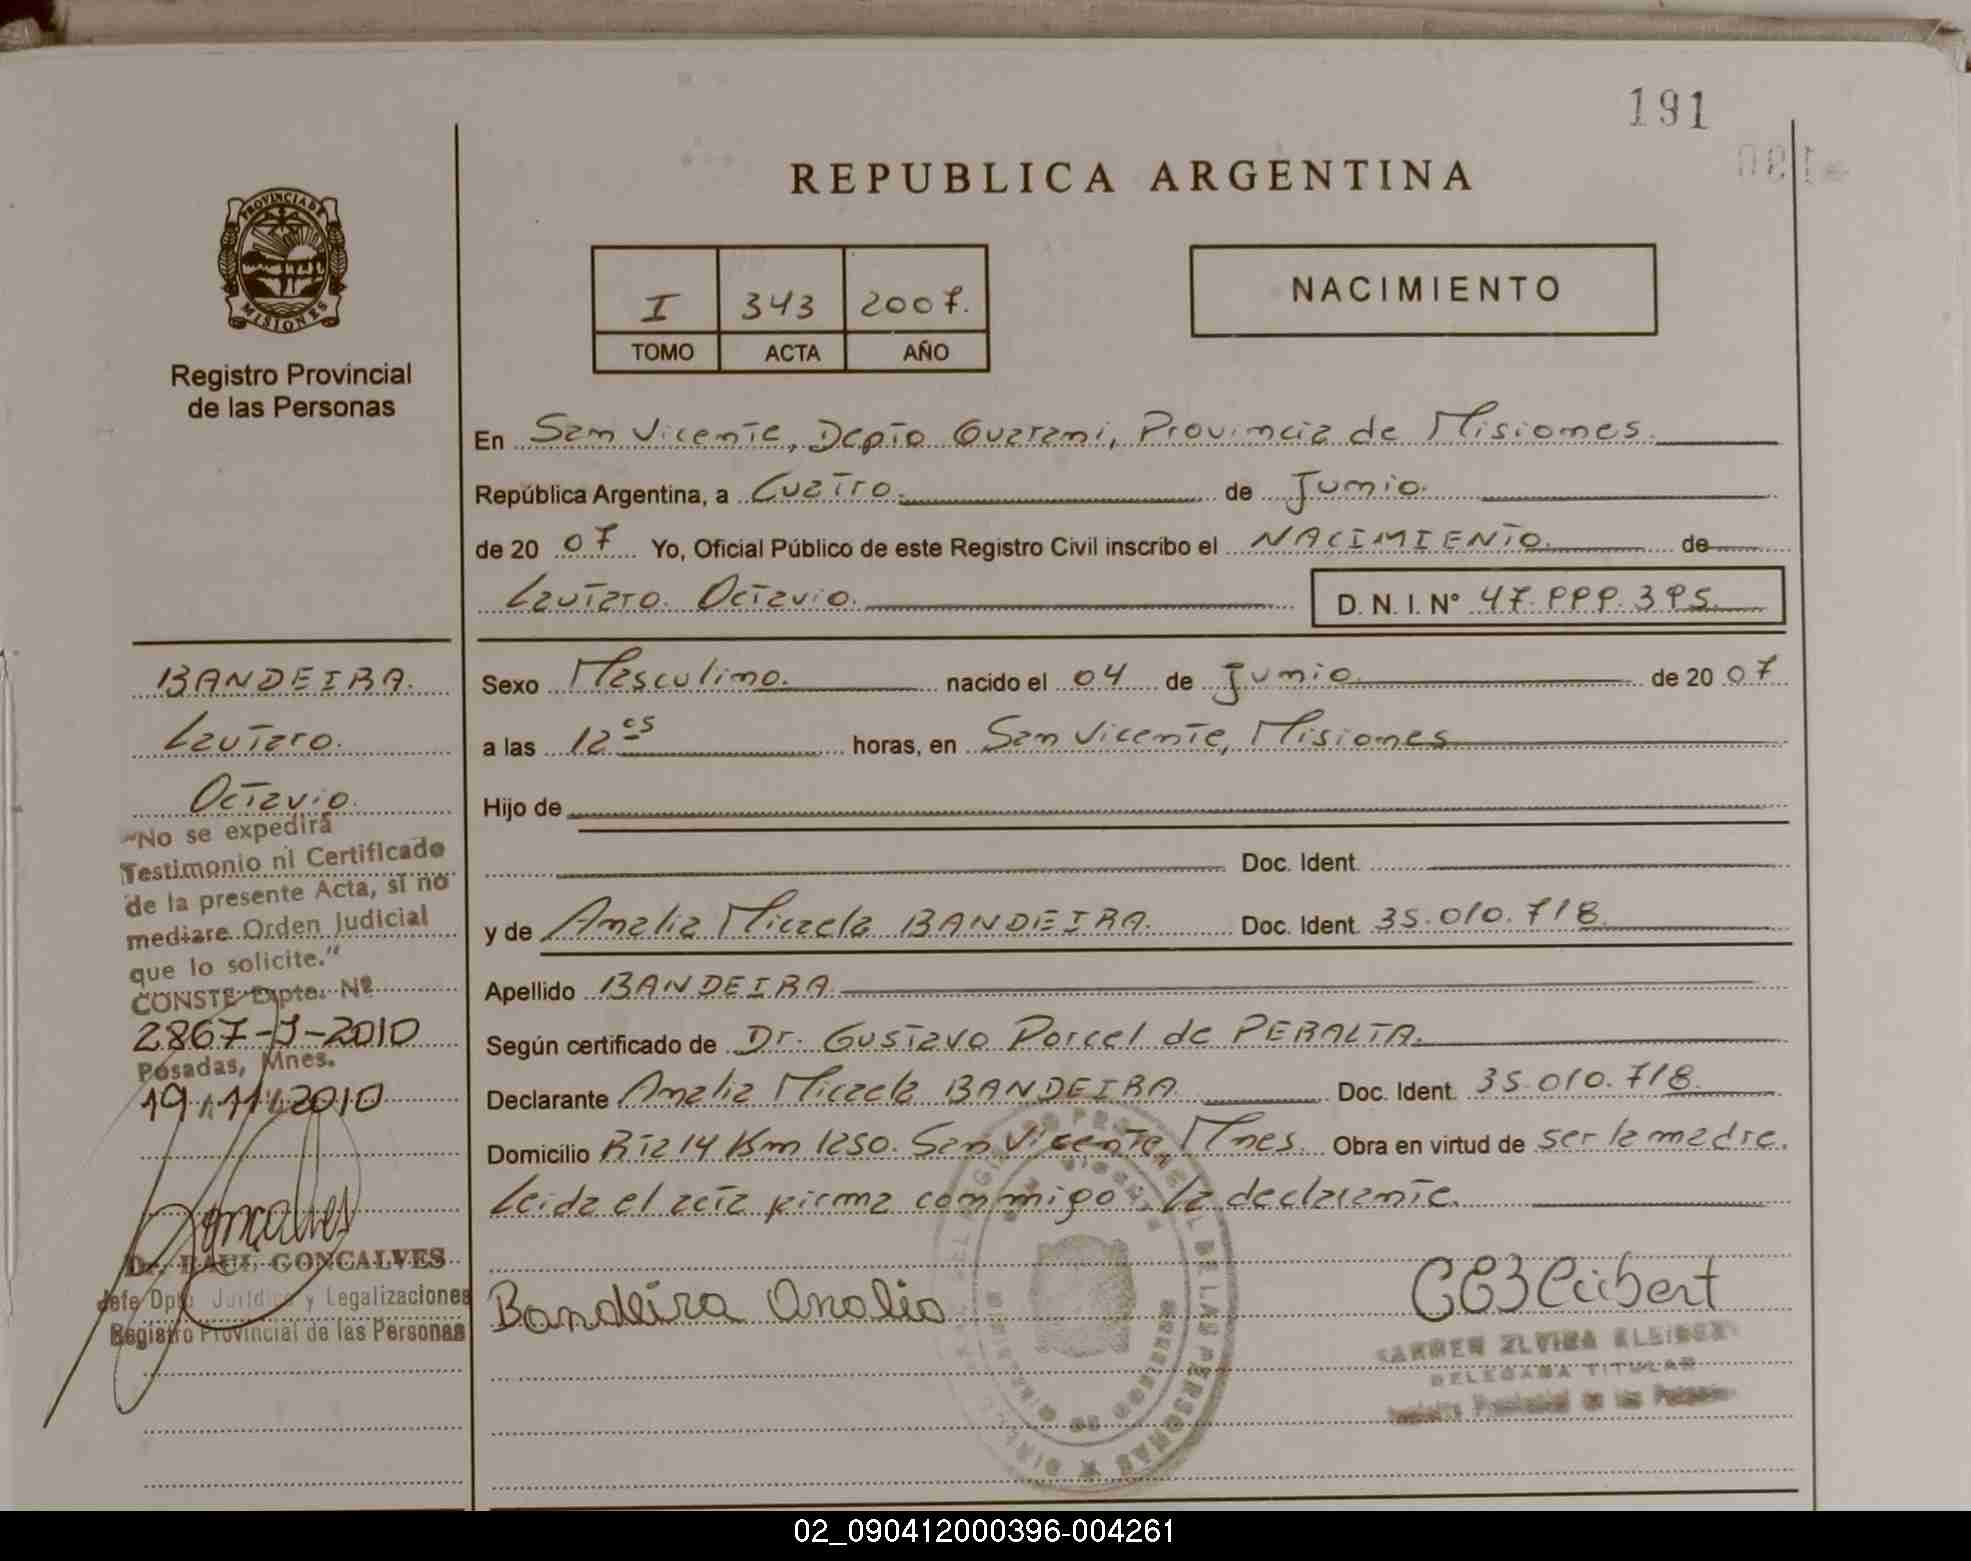 191
REPUBLICA ARGENTINA
PROVINCIA DE
MISIONES
Registro Provincial
de las Personas
I 343 2007.
TOMO ACTA AÑO
NACIMIENTO
En San Vicente, Depto Guarani, Provincia de Misiones.
República Argentina, a Cuatro. de Junio.
de 20 07 Yo, Oficial Público de este Registro Civil inscribo el NACIMIENTO. de
Lautaro Octavio. D. N. I. Nº
BANDEIRA.
Lautaro.
Octavio.
"No se expedirá
Testimonio ni Certificado
de la presente Acta, si no
mediare Orden Judicial
que lo solicite."
CONSTE Expte. Nº
2867-J-2010
Posadas, Mnes.
19/11/2010
Goncalves
Dr. RAUL GONCALVES
Jefe Dpto. Jurídico y Legalizaciones
Registro Provincial de las Personas
Sexo Masculino. nacido el 04 de Junio de 20 07
a las 12 horas, en San Vicente, Misiones
Hijo de
Doc. Ident.
y de Analia Micaela BANDEIRA. Doc. Ident. 35.010.718
Apellido BANDEIRA
Según certificado de Dr. Gustavo Porcel de PERALTA.
Declarante Analia Micaela BANDEIRA Doc. Ident. 35.010.718
Domicilio Rta 14 Km 1250. San Vicente, Mnes. Obra en virtud de ser la madre.
Leida el acta firma conmigo la declarante.
Bandeira Analia
DELEGADA TITULAR
Registro Provincial de las Personas
DE LAS PERSONAS
02_090412000396-004261